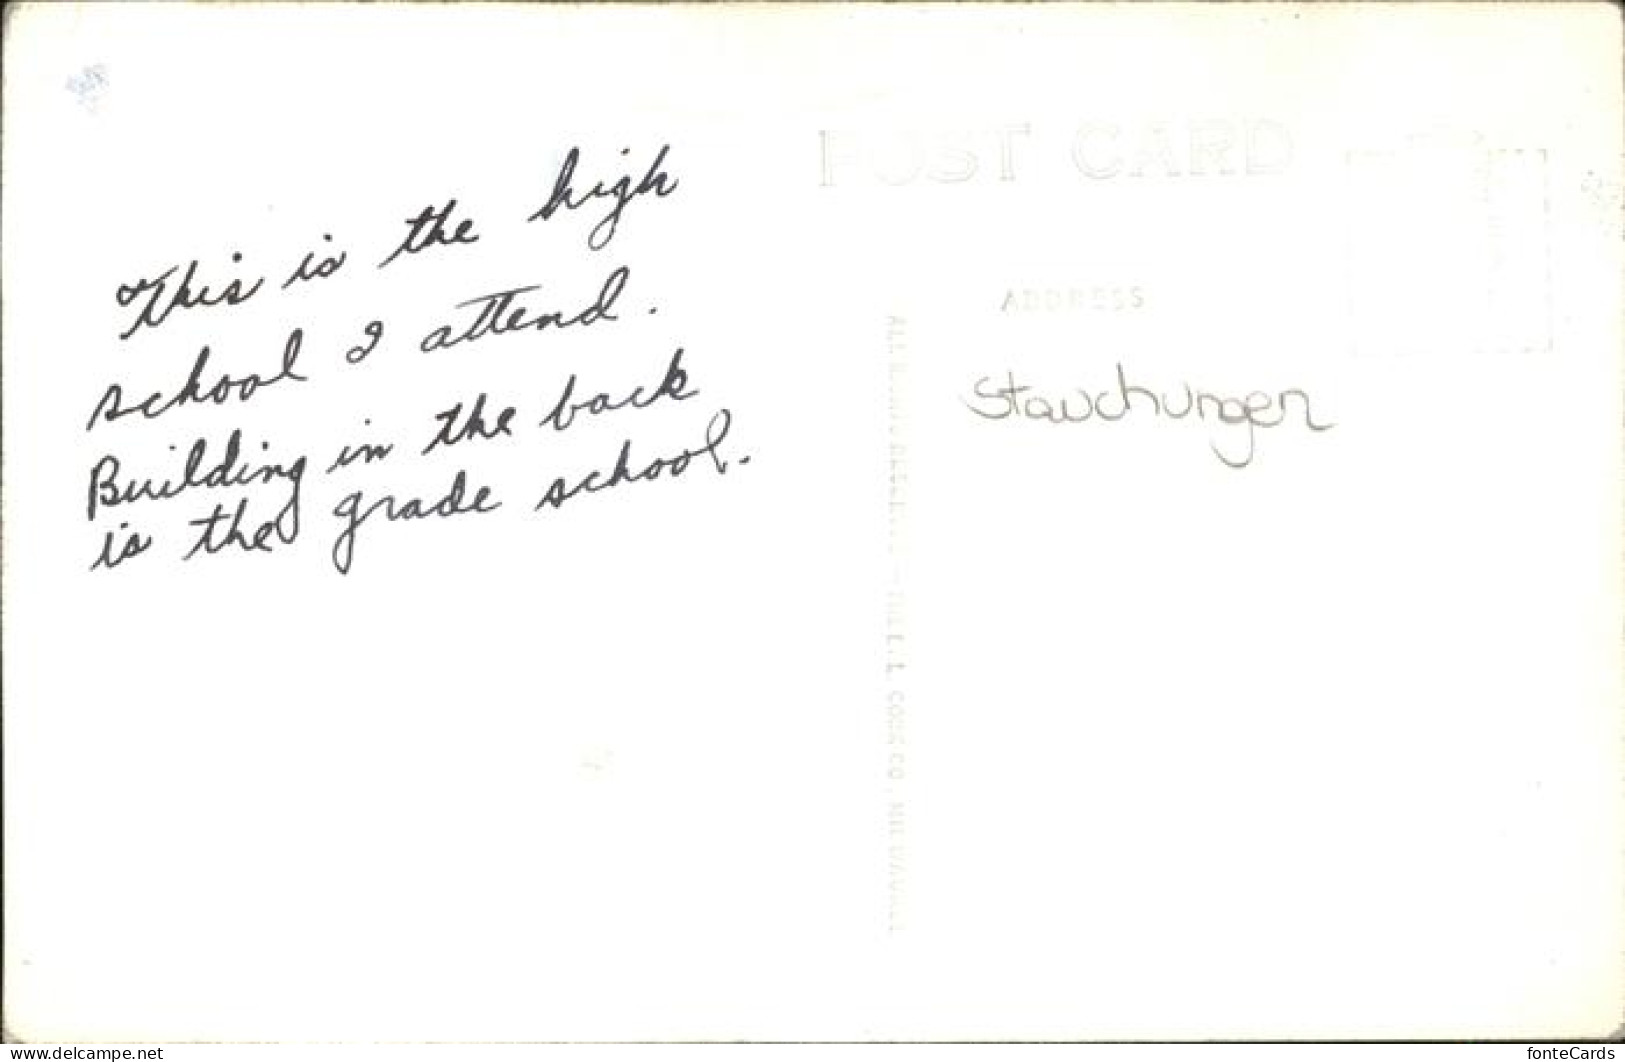 This is the high
school I attend.
Building in the back
is the grade school.
POST CARD
ADDRESS
Stauchungen
CO. MILWAUKEE
www.delcampe.net
fonteCards